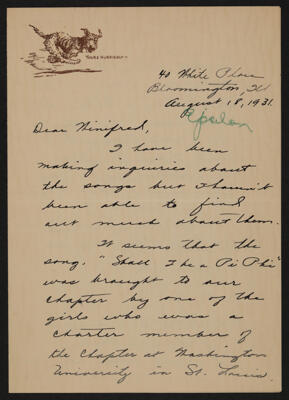 YOURS HURRIEDLY—
40 White Place
Bloomington, Ill
August 18, 1931.
Epsilon
Dear Winifred,
I have been
making inquiries about
the songs but I haven't
been able to find
out much about them.
It seems that the
song, "Shall I be a Pi Phi"
was brought to our
chapter by one of the
girls who was a
charter member of
the Chapter at Washington
University in St. Louis.